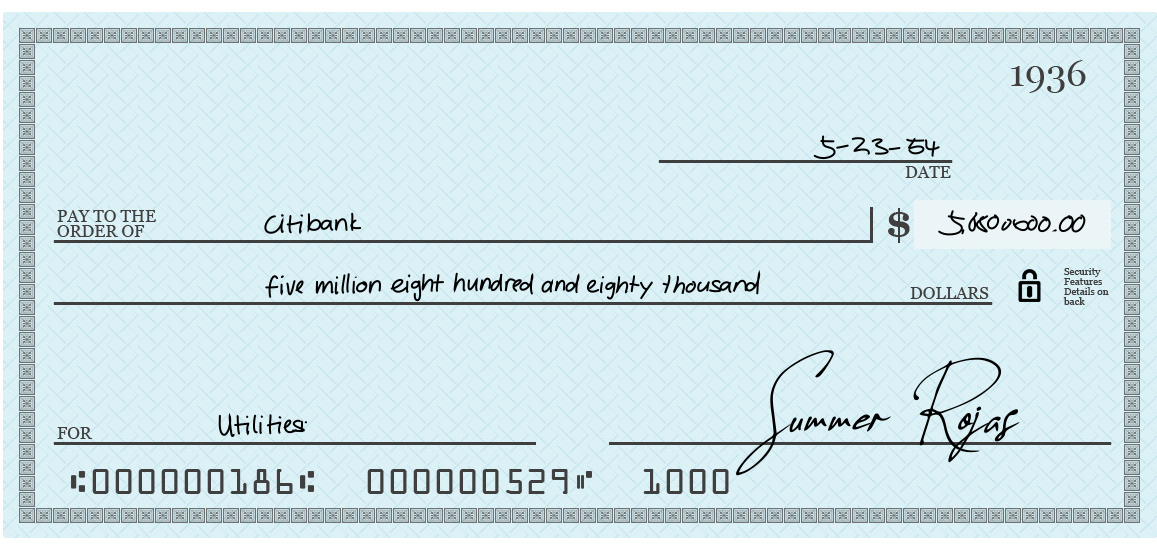 1936
DATE
PAY TO THE
ORDER OF Citibank $
five million eight hundred and eighty thousand DOLLARS
Security
Features
Details on
back
FOR Utilities Summer Rojas
⑆000000186⑆ 000000529⑈ 1000